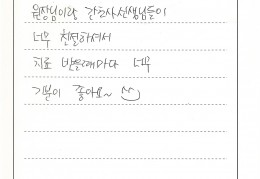 원장님이랑 간호사선생님들이
너무 친절하셔서
치료 받을때마다 너무
기분이 좋아요~